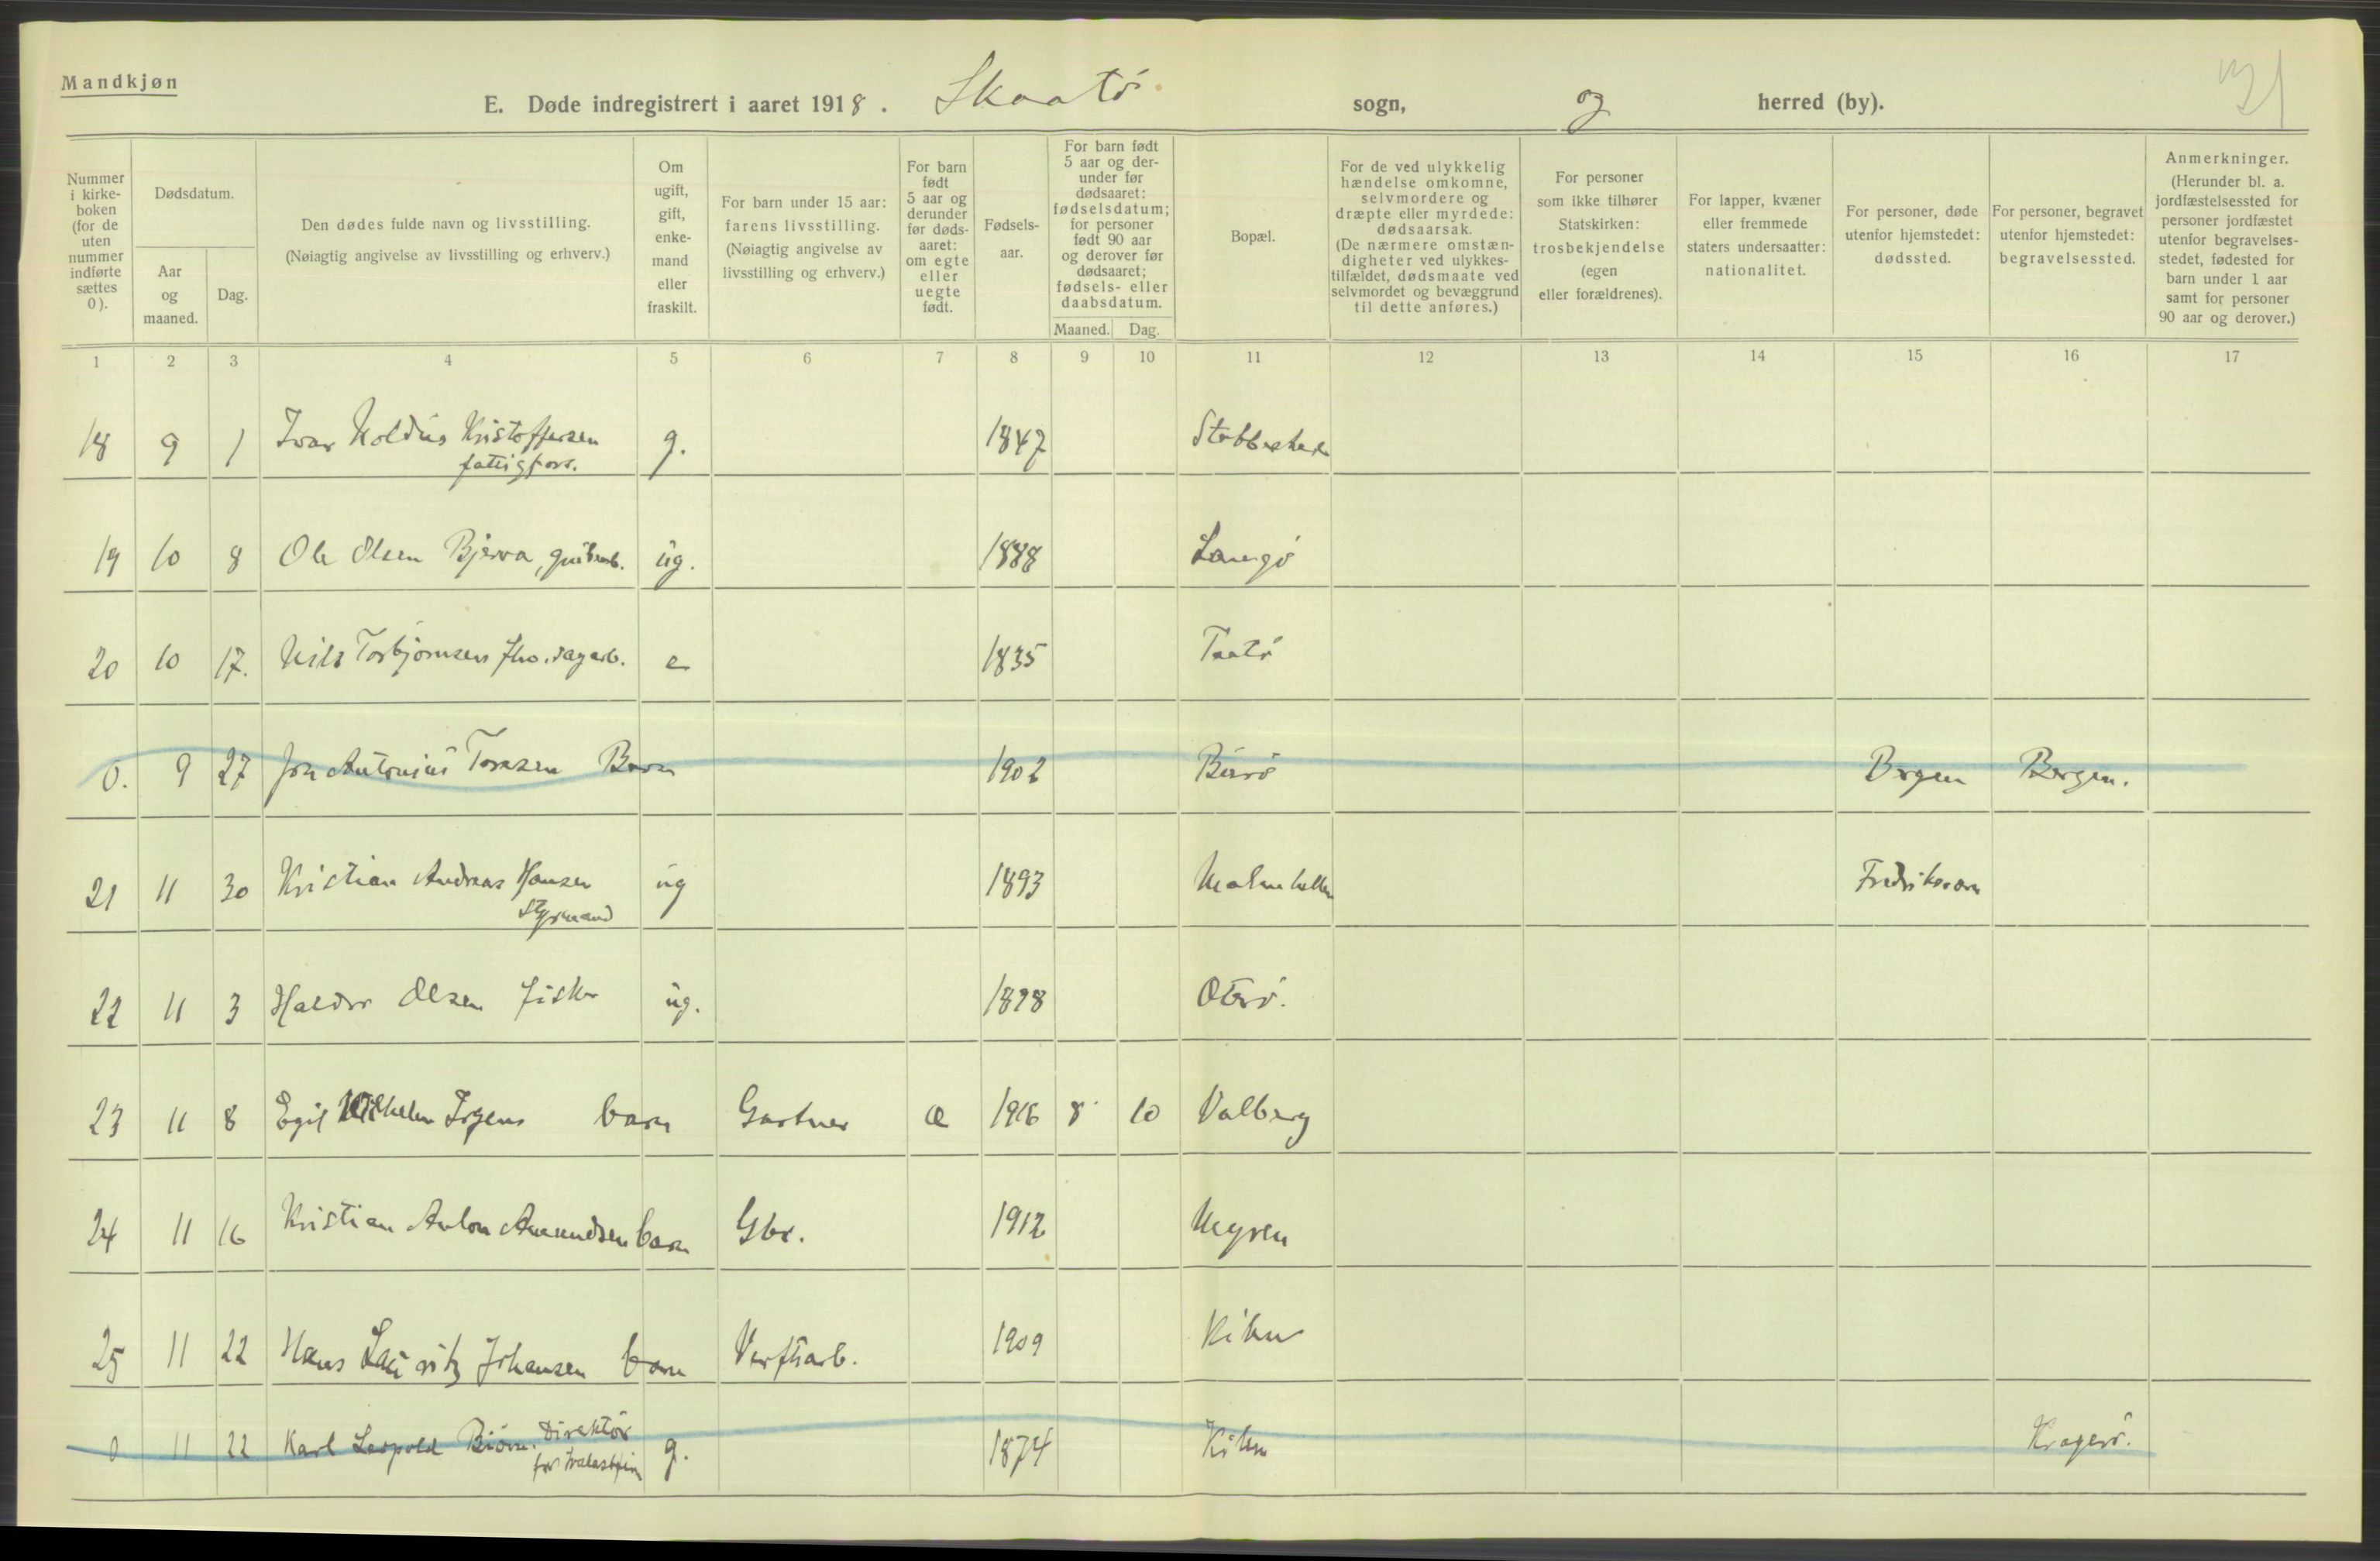 Mandkjøn
E. Døde indregistrert i aaret 1918. Skaatø sogn, og herred (by).
31
Nummer i kirkeboken (for de uten nummer indførte sættes 0).
Dødsdatum.
Aar og maaned.
Dag.
Den dødes fulde navn og livsstilling.
(Nøiagtig angivelse av livsstilling og erhverv.)
Om ugift, gift, enkemand eller fraskilt.
For barn under 15 aar: farens livsstilling.
(Nøiagtig angivelse av livsstilling og erhverv.)
For barn født 5 aar og derunder før dødsaaret: om egte eller uegte født.
Fødselsaar.
For barn født 5 aar og derunder før dødsaaret: fødselsdatum; for personer født 90 aar og derover før dødsaaret; fødsels- eller daabsdatum.
Maaned. Dag.
Bopæl.
For de ved ulykkelig hændelse omkomne, selvmordere og dræpte eller myrdede: dødsaarsak.
(De nærmere omstændigheter ved ulykkestilfældet, dødsmaate ved selvmordet og bevæggrund til dette anføres.)
For personer som ikke tilhører Statskirken: trosbekjendelse (egen eller forældrenes).
For lapper, kvæner eller fremmede staters undersaatter: nationalitet.
For personer, døde utenfor hjemstedet: dødssted.
For personer, begravet utenfor hjemstedet: begravelsessted.
Anmerkninger.
(Herunder bl. a. jordfæstelsessted for personer jordfæstet utenfor begravelsesstedet, fødested for barn under 1 aar samt for personer 90 aar og derover.)
1 2 3 4 5 6 7 8 9 10 11 12 13 14 15 16 17
18 9 1 Ivar Kristoffersen g. 1847
19 10 8 Ole Olsen Bjerva, ug. 1888 Langø
20 10 17. Nils Torbjørnsen fhv. sagarb. e 1835 Taatø
0. 9 27 Joh Antonius Barn 1902 Bergen Bergen.
21 11 30 Kristian Andreas Hansen ug 1893 Fredriksværn
Styrmand
22 11 3 Haldor Olsen fisker ug. 1898 Oterø.
23 11 8 Egil Vilhelm Irgens barn Gartner æ 1916 8 10 Valberg
24 11 16 Kristian Anton Amundsen barn Gbr. 1912 Myren
25 11 22 Hans Lauritz Johansen barn Verftsarb. 1909 Kilen
0 11 22 Karl Leopold Biørn. Direktør g. 1874 Kilen Kragerø.